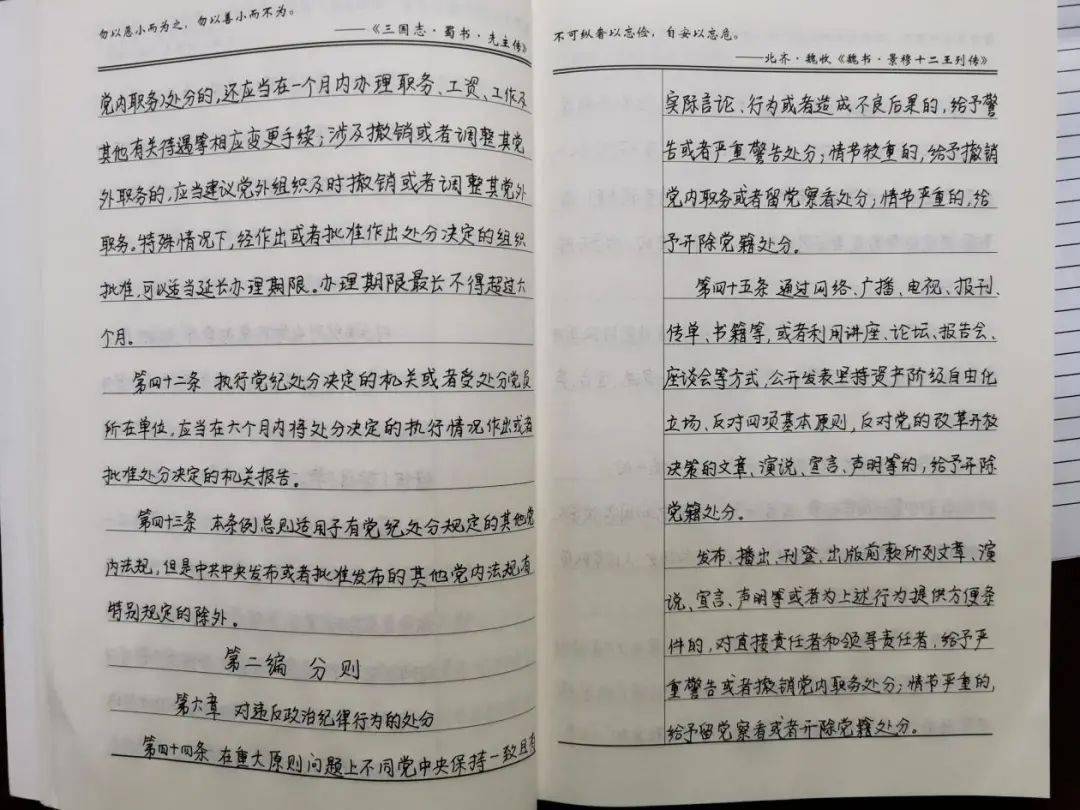 勿以恶小而为之，勿以善小而不为。
——《三国志·蜀书·先主传》
党内职务）处分的，还应当在一个月内办理职务、工资、工作及
其他有关待遇等相应变更手续；涉及撤销或者调整其党
外职务的，应当建议党外组织及时撤销或者调整其党外
职务。特殊情况下，经作出或者批准作出处分决定的组织
批准，可以适当延长办理期限。办理期限最长不得超过六
个月。
第四十二条 执行党纪处分决定的机关或者受处分党员
所在单位，应当在六个月内将处分决定的执行情况作出或者
批准处分决定的机关报告。
第四十三条 本条例总则适用于有党纪处分规定的其他党
内法规，但是中共中央发布或者批准发布的其他党内法规有
特别规定的除外。
第二编 分则
第六章 对违反政治纪律行为的处分
第四十四条 在重大原则问题上不同党中央保持一致且有
不可纵奢以忘俭，自安以忘危。
——北齐·魏收《魏书·景穆十二王列传》
实际言论、行为或者造成不良后果的，给予警
告或者严重警告处分；情节较重的，给予撤销
党内职务或者留党察看处分；情节严重的，给
予开除党籍处分。
第四十五条 通过网络、广播、电视、报刊、
传单、书籍等，或者利用讲座、论坛、报告会、
座谈会等方式，公开发表坚持资产阶级自由化
立场、反对四项基本原则，反对党的改革开放
决策的文章、演说、宣言、声明等的，给予开除
党籍处分。
发布、播出、刊登、出版前款所列文章、演
说、宣言、声明等或者为上述行为提供方便条
件的，对直接责任者和领导责任者，给予严
重警告或者撤销党内职务处分；情节严重的，
给予留党察看或者开除党籍处分。